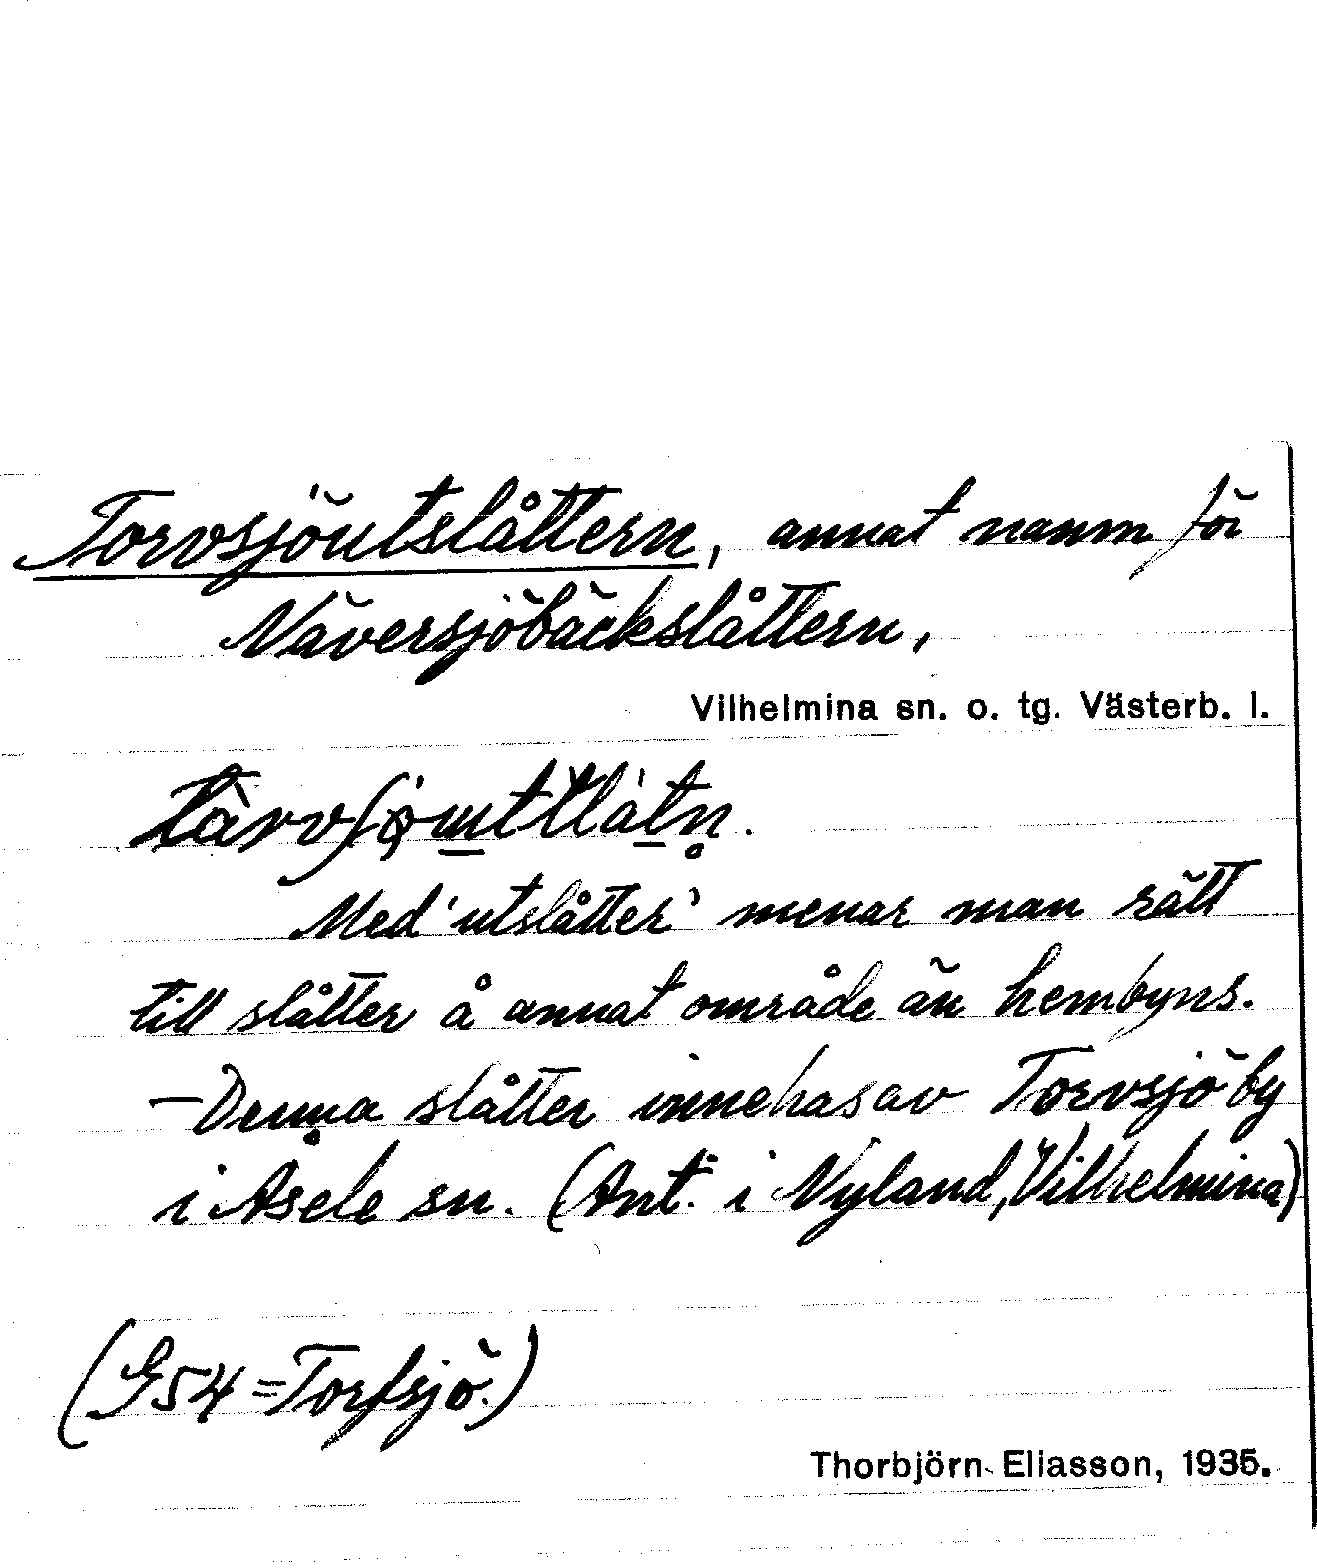 Torvsjöutslåttern, annat namn för
Näversjöbäckslåttern,
Vilhelmina sn. o. tg. Västerb. l.
Med 'utslåtter' menar man rätt
till slåtter å annat område än hembyns.
— Denna slåtter innehas av Torvsjö by
i Åsele sn. (Ant. i Nyland, Vilhelmina)
(G54 = Torfsjö.)
Thorbjörn Eliasson, 1935.